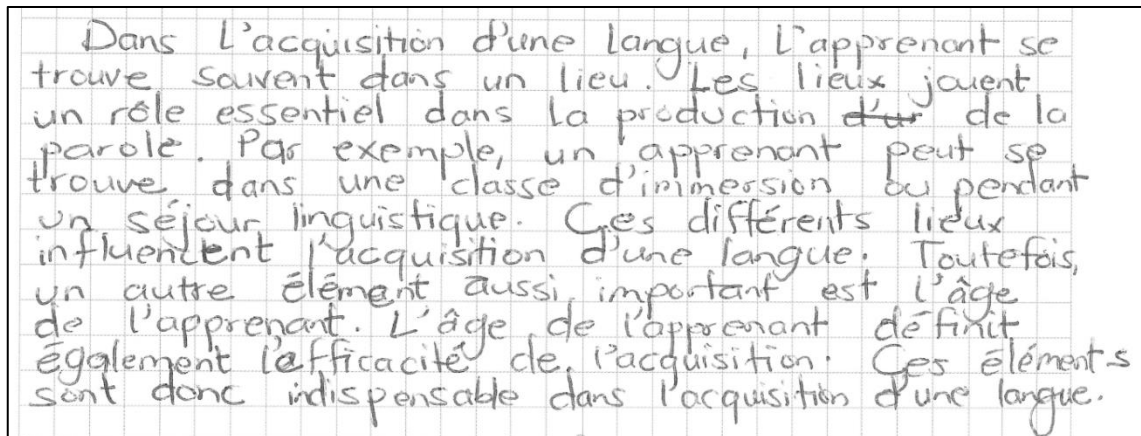 Dans l'acquisition d'une langue, l'apprenant se
trouve souvent dans un lieu. Les lieux jouent
un rôle essentiel dans la production de la
parole. Par exemple, un apprenant peut se
trouve dans une classe d'immersion ou pendant
un séjour linguistique. Ces différents lieux
influencent l'acquisition d'une langue. Toutefois,
un autre élément aussi important est l'âge
de l'apprenant. L'âge de l'apprenant définit
également l'efficacité de l'acquisition. Ces éléments
sont donc indispensable dans l'acquisition d'une langue.